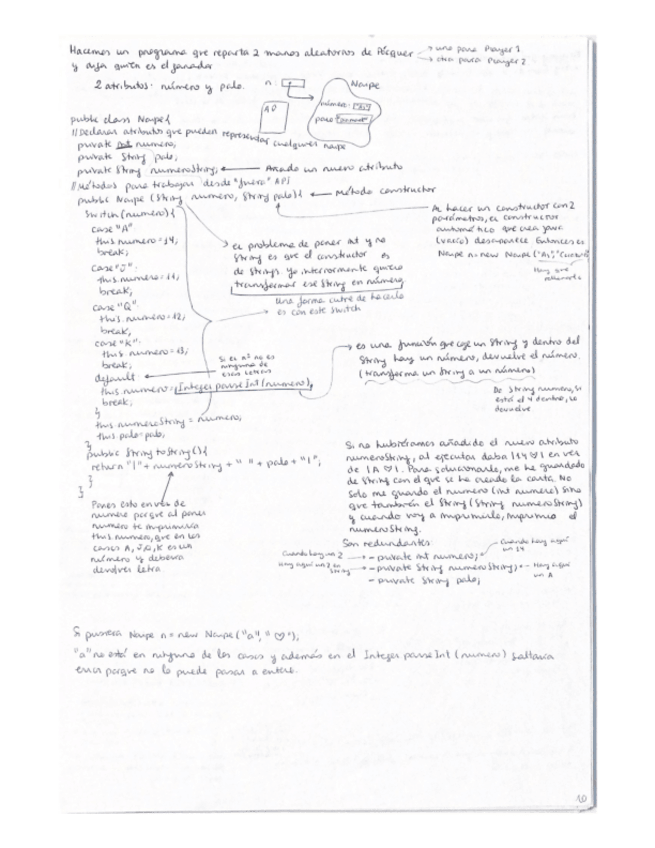 Hacemos un programa que reparta 2 manos aleatorias de Pócquer → una para Player 1
→ otra para Player 2
y diga quién es el ganador
2 atributos: número y palo.
n:
Naipe
número: "As"
palo:
A♡
public class Naipe{
//Declaras atributos que puedan representar cualquier naipe
private int numero;
private String palo;
private String numeroString; ← Añado un nuevo atributo
//Métodos para trabajar desde "fuera" API
public Naipe (String numero, String palo){ ← Método constructor
switch(numero){
case "A"
this.numero=14;
break;
case "J":
this.numero=11;
break;
case "Q":
this.numero=12;
break;
case "K":
this.numero=13;
break;
default
this.numero=Integer.parseInt(numero);
break;
}
this.numeroString = numero;
this.palo=palo;
}
public String toString(){
return "|"+numeroString+" "+palo+"|";
}
}
Al hacer un constructor con 2
parámetros, el constructor
automático que crea java
(vacío) desaparece. Entonces es
Naipe n=new Naipe("As",
Hay que
rellenarlo
el problema de poner int y no
String es que el constructor es
de Strings. Yo internamente quiero
transformar ese String en número,
Una forma cutre de hacerlo
es con este switch
Si el nº no es
ninguna de
esas letras
es una función que coge un String y dentro del
String hay un número, devuelve el número.
(transforma un String a un número)
De String numero, si
está el 4 dentro, lo
devuelve
Si no hubiéramos añadido el nuevo atributo
numeroString, al ejecutar daba |14♡| en vez
de |A♡|. Para solucionarlo, me he guardado
de String con el que se ha creado la carta. No
solo me guardo el numero (int numero) sino
que también el String (String numeroString)
y cuando voy a imprimirlo, imprimo el
numeroString.
Son redundantes
Cuando hay un 2
Hay aquí un 2 en
String
- private int numero;
- private String numeroString;
- private String palo;
Cuando hay aquí
un 14
Hay aquí
un A
Pones esto en vez de
numero porque al poner
numero te imprimiría
this.numero, que en los
casos A, J, Q, K es un
número y debería
devolver letra.
Si pusiera Naipe n = new Naipe("a", "♡");
"a" no está en ninguno de los casos y además en el Integer.parseInt(numero) saltaría
error porque no lo puede pasar a entero.
10